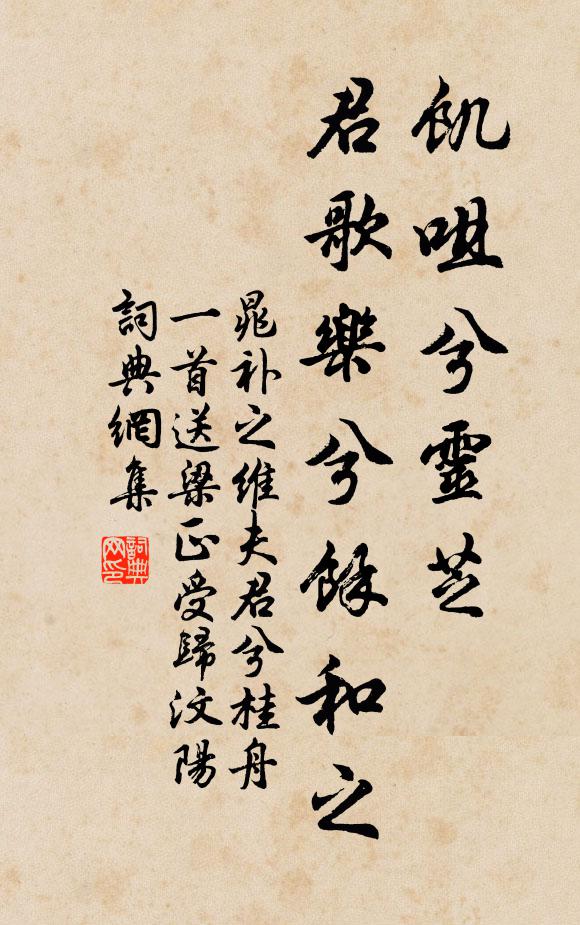 飢咀兮靈芝
君歌樂兮餘和之
晁补之維夫君兮桂舟
一首送梁正受歸汶陽
詞典網集
詞典网印